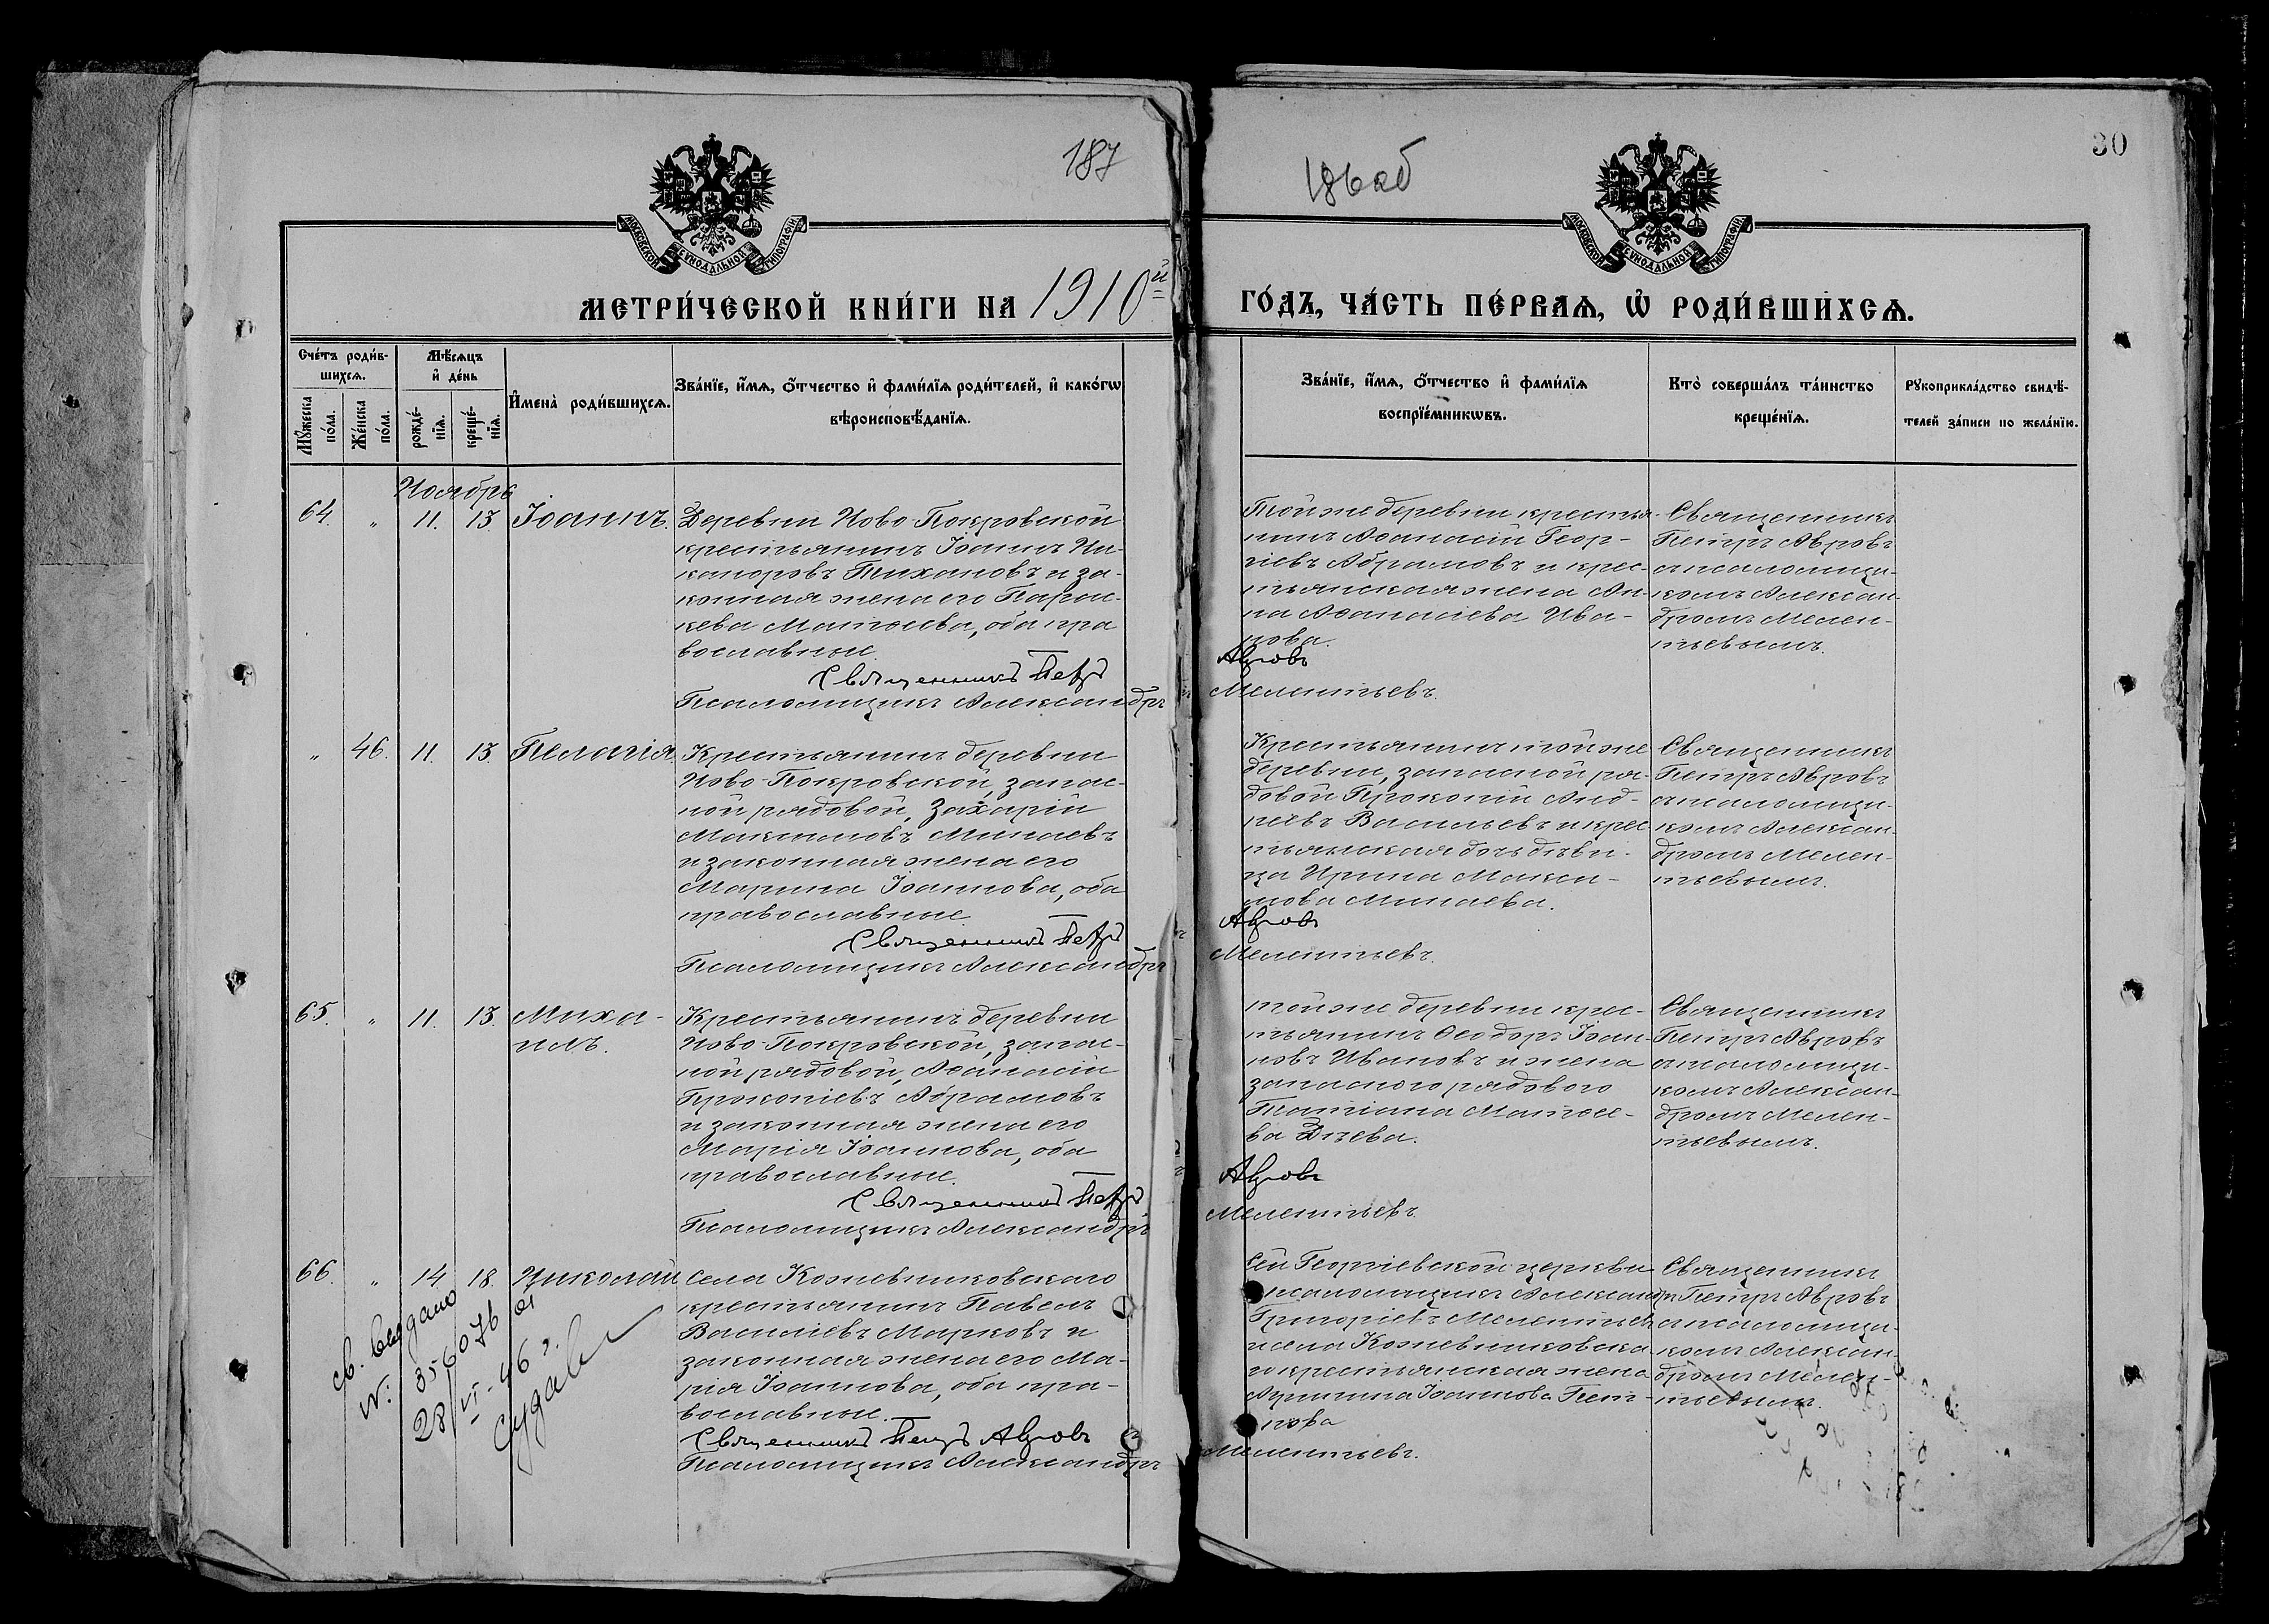 187
186об
30
МОСКОВСКОЙ СѴНОДАЛЬНОЙ ТИПОГРАФІИ
МОСКОВСКОЙ СѴНОДАЛЬНОЙ ТИПОГРАФІИ
МЕТРИ́ЧЕСКОЙ КНИ́ГИ НА 1910й
ГО́ДЪ, ЧА́СТЬ ПЕ́РВАѦ, Ѡ҆ РОДИ́ВШИХСѦ.
Сче́тъ роди́в-
шихсѧ.
Мѣ́сѧцъ
и҆ де́нь
Мꙋ́жеска
по́ла.
Же́нска
по́ла.
рожде́-
нїѧ.
креще́-
нїѧ.
И҆мена̀ роди́вшихсѧ.
Зва́нїе, и҆́мѧ, ѻ҆́тчество и҆ фами́лїѧ роди́телей, и҆ како́гѡ
вѣроисповѣ́данїѧ.
Зва́нїе, и҆́мѧ, ѻ҆́тчество и҆ фами́лїѧ
воспрїе́мникѡвъ.
Кто̀ соверша́лъ та́инство
креще́нїѧ.
Рꙋкоприкла́дство свидѣ́-
телей за́писи по жела́нїю.
Ноябрь
64. " 11. 13 Іоаннъ.
Деревни Ново-Покровской
крестьянинъ Іоаннъ Ни-
каноровъ Тихановъ и за-
конная жена его Парас-
кева Матѳеева, оба пра
вославные.
Священникъ Петръ
Псаломщикъ Александръ
Той же деревни кресть-
нинъ Аѳанасій Геор-
гіевъ Абрамовъ и крес-
тьянская жена Ан-
на Аѳанасіева Ива-
нова.
Авровъ
Мелентьевъ.
Священникъ
Петръ Авровъ
съ псаломщи-
комъ Алексан-
дромъ Мелен-
тьевымъ.
" 46. 11. 13. Пелагія
Крестьянинъ деревни
Ново-Покровской, запас-
ной рядовой, Захарій
Максимовъ Минаевъ
и законная жена его
Марина Іоаннова, оба
православные
Священникъ Петръ
Псаломщикъ Александръ
Крестьянинъ той же
деревни, запасной ря-
довой Прокопій Анд-
реевъ Васильевъ и крес
тьянская дочь дѣви-
ца Ирина Макси-
мова Минаева.
Авровъ
Мелентьевъ.
Священникъ
Петръ Авровъ
съ псаломщи-
комъ Алексан-
дромъ Мелен-
тьевымъ.
65. " 11. 13. Миха-
илъ.
Крестьянинъ деревни
Ново-Покровской, запас-
ной рядовой, Аѳанасій
Прокопіевъ Абрамовъ
и законная жена его
Марія Іоаннова, оба
православные.
Священникъ Петръ
Псаломщикъ Александръ
той же деревни крес-
тьянинъ Ѳеодоръ Іоан-
новъ Ивановъ и жена
запасного рядового
Татіана Матѳее-
ва
Авровъ
Мелентьевъ
Священникъ
Петръ Авровъ
съ псаломщи-
комъ Алексан-
дромъ Мелен-
тьевымъ.
66. " 14 18. Николай
Села Кожевниковскаго
крестьянинъ Павелъ
Васильевъ Марковъ и
законная жена его Ма-
рія Іоаннова, оба пра-
вославные.
Священникъ Петръ Авровъ
Псаломщикъ Александръ
Сей Георгіевской церкви
псаломщикъ Александръ
Григоріевъ Мелентьевъ
и села Кожевниковска
го крестьянская жена
Іоаннова Пет-
рова
Мелентьевъ.
Священникъ
Петръ Авровъ
съ псаломщи-
комъ Алексан-
дромъ Мелен-
тьевымъ.
св. выдано
N: 356076 от
28/VI-46 г.